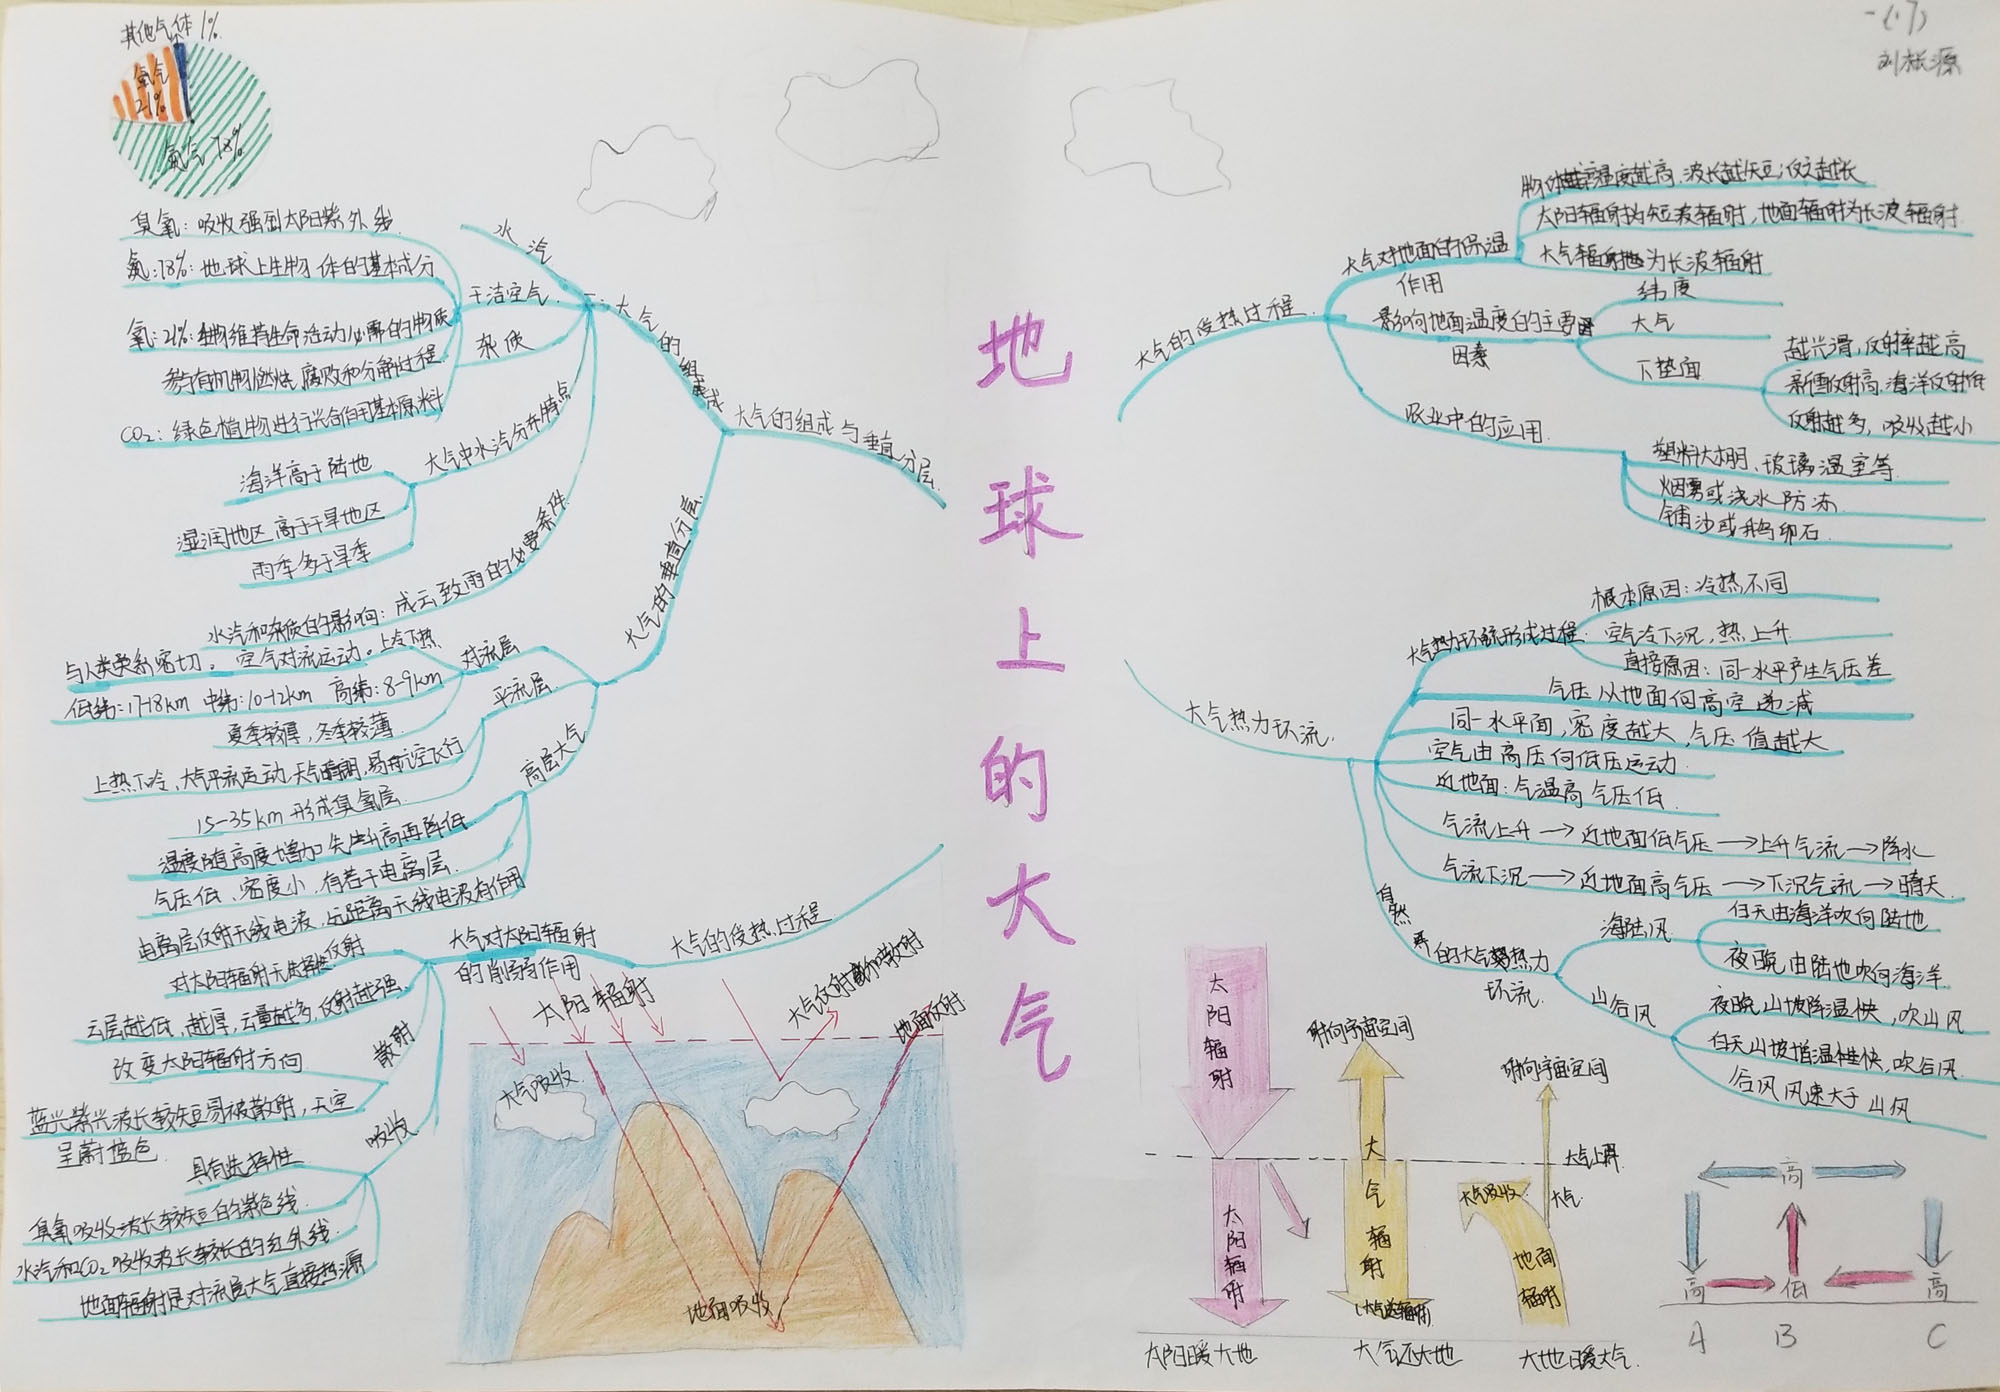 其他气体1%
氧气
21%
氮气78%
一(17)
地球上的大气
大气的组成与垂直分层
大气的组成
水汽
干洁空气
臭氧：吸收强到太阳紫外线
氮:78%:地球上生物体的基本成分
氧:21%:生物维持生命活动必需的物质
参与有机物燃烧、腐败和分解过程
CO2：绿色植物进行光合作用基本原料
杂质
大气中水汽分布特点
海洋高于陆地
湿润地区高于干旱地区
雨季多于旱季
水汽和杂质的影响：成云致雨的必要条件
大气的垂直分层
对流层
与人类关系密切。空气对流运动。上冷下热
低纬：17-18km 中纬：10-12km 高纬：8-9km
夏季较厚，冬季较薄
平流层
上热下冷、大气平流运动、天气晴朗，易航空飞行
15-35km 形成臭氧层
高层大气
温度随高度增加先升高再降低
气压低、密度小、有若干电离层
电离层反射无线电波，远距离无线电波有作用
大气的受热过程
大气对太阳辐射
的削弱作用
对太阳辐射无选择性反射
云层越低，越厚，云量越多，反射越强
散射
改变太阳辐射方向
蓝光紫光波长较短易被散射，天空
呈蔚蓝色
吸收
具有选择性
臭氧吸收波长较短的紫色线
水汽和CO2吸收波长较长的红外线
地面辐射是对流层大气直接热源
太阳辐射
大气反射和散射
地面反射
大气吸收
地面吸收
大气的受热过程
大气对地面的保温
作用
物体温度越高，波长越短；反之越长
太阳辐射为短波辐射，地面辐射为长波辐射
大气辐射也为长波辐射
影响地面温度的主要
因素
纬度
大气
下垫面
越光滑，反射率越高
新雪反射高，海洋反射低
反射越多，吸收越小
农业中的应用
塑料大棚、玻璃温室等
烟雾或浇水防冻
铺沙或鹅卵石
大气热力环流
大气热力环流形成过程
根本原因：冷热不同
空气冷下沉，热上升
直接原因：同一水平产生气压差
气压从地面向高空递减
同一水平面，密度越大，气压值越大
空气由高压向低压运动
近地面：气温高气压低
气流上升→近地面低气压→上升气流→降水
气流下沉→近地面高气压→下沉气流→晴天
自然界的大气热力
环流
海陆风
白天由海洋吹向陆地
夜晚由陆地吹向海洋
山谷风
夜晚山坡降温快，吹山风
白天山坡增温快，吹谷风
谷风风速大于山风
太阳辐射
太阳辐射
太阳暖大地
射向宇宙空间
大气辐射
(大气逆辐射)
大气还大地
射向宇宙空间
大气上界
大气
大气吸收
地面
辐射
大地暖大气
高
高 低 高
A B C